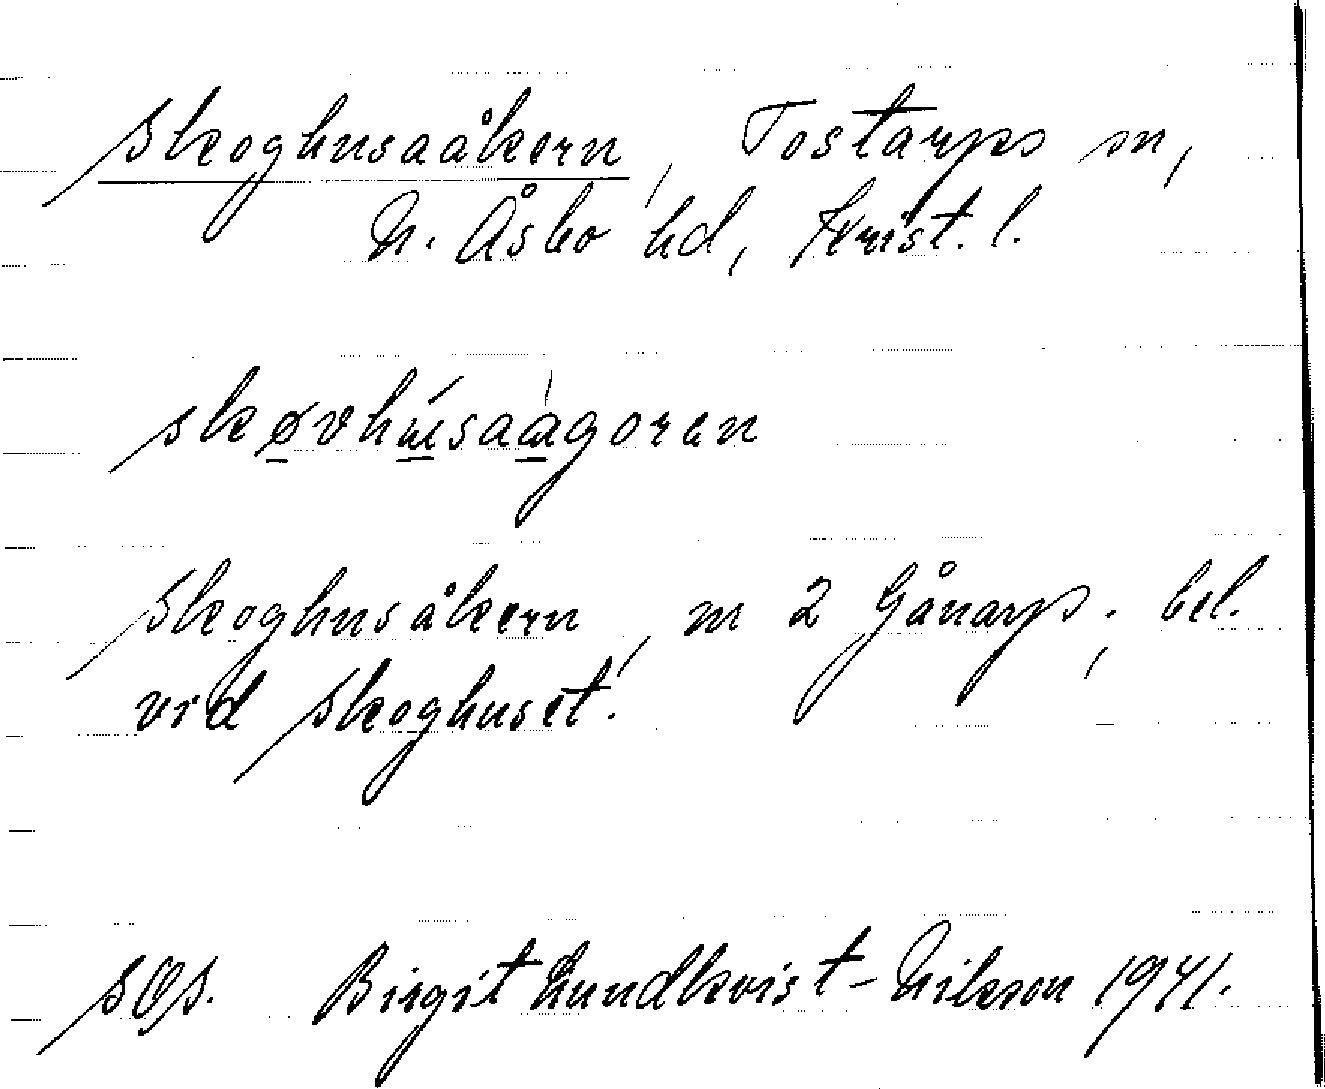 Skoghusaåkern, Tostarps sn,
N. Åsbo hd, Krist. l.
skøvhúsaàgoren
Skoghusåkern, m 2 Gånarp; bel.
vid Skoghuset.
Birgit Lundkvist-Nilsson 1941.